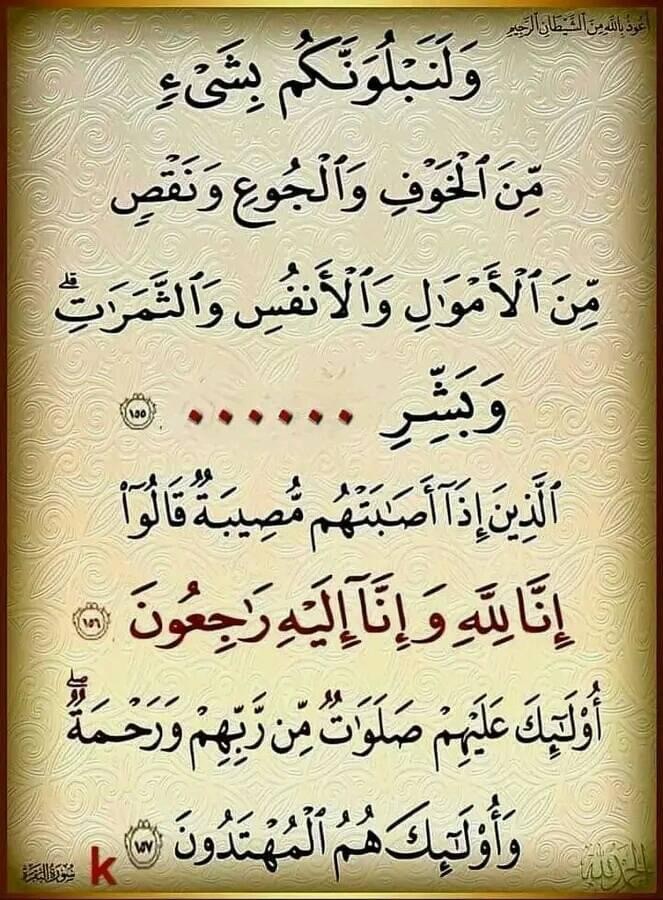 أعوذ بالله من الشيطان الرجيم
وَلَنَبْلُوَنَّكُم بِشَىْءٍ
مِّنَ ٱلْخَوْفِ وَٱلْجُوعِ وَنَقْصٍ
مِّنَ ٱلْأَمْوَٰلِ وَٱلْأَنفُسِ وَٱلثَّمَرَٰتِ ۗ
وَبَشِّرِ ...... ١٥٥
ٱلَّذِينَ إِذَآ أَصَٰبَتْهُم مُّصِيبَةٌ قَالُوٓا۟
إِنَّا لِلَّهِ وَإِنَّآ إِلَيْهِ رَٰجِعُونَ ١٥٦
أُو۟لَٰٓئِكَ عَلَيْهِمْ صَلَوَٰتٌ مِّن رَّبِّهِمْ وَرَحْمَةٌ ۖ
وَأُو۟لَٰٓئِكَ هُمُ ٱلْمُهْتَدُونَ ١٥٧
سورة البقرة k الحمد لله